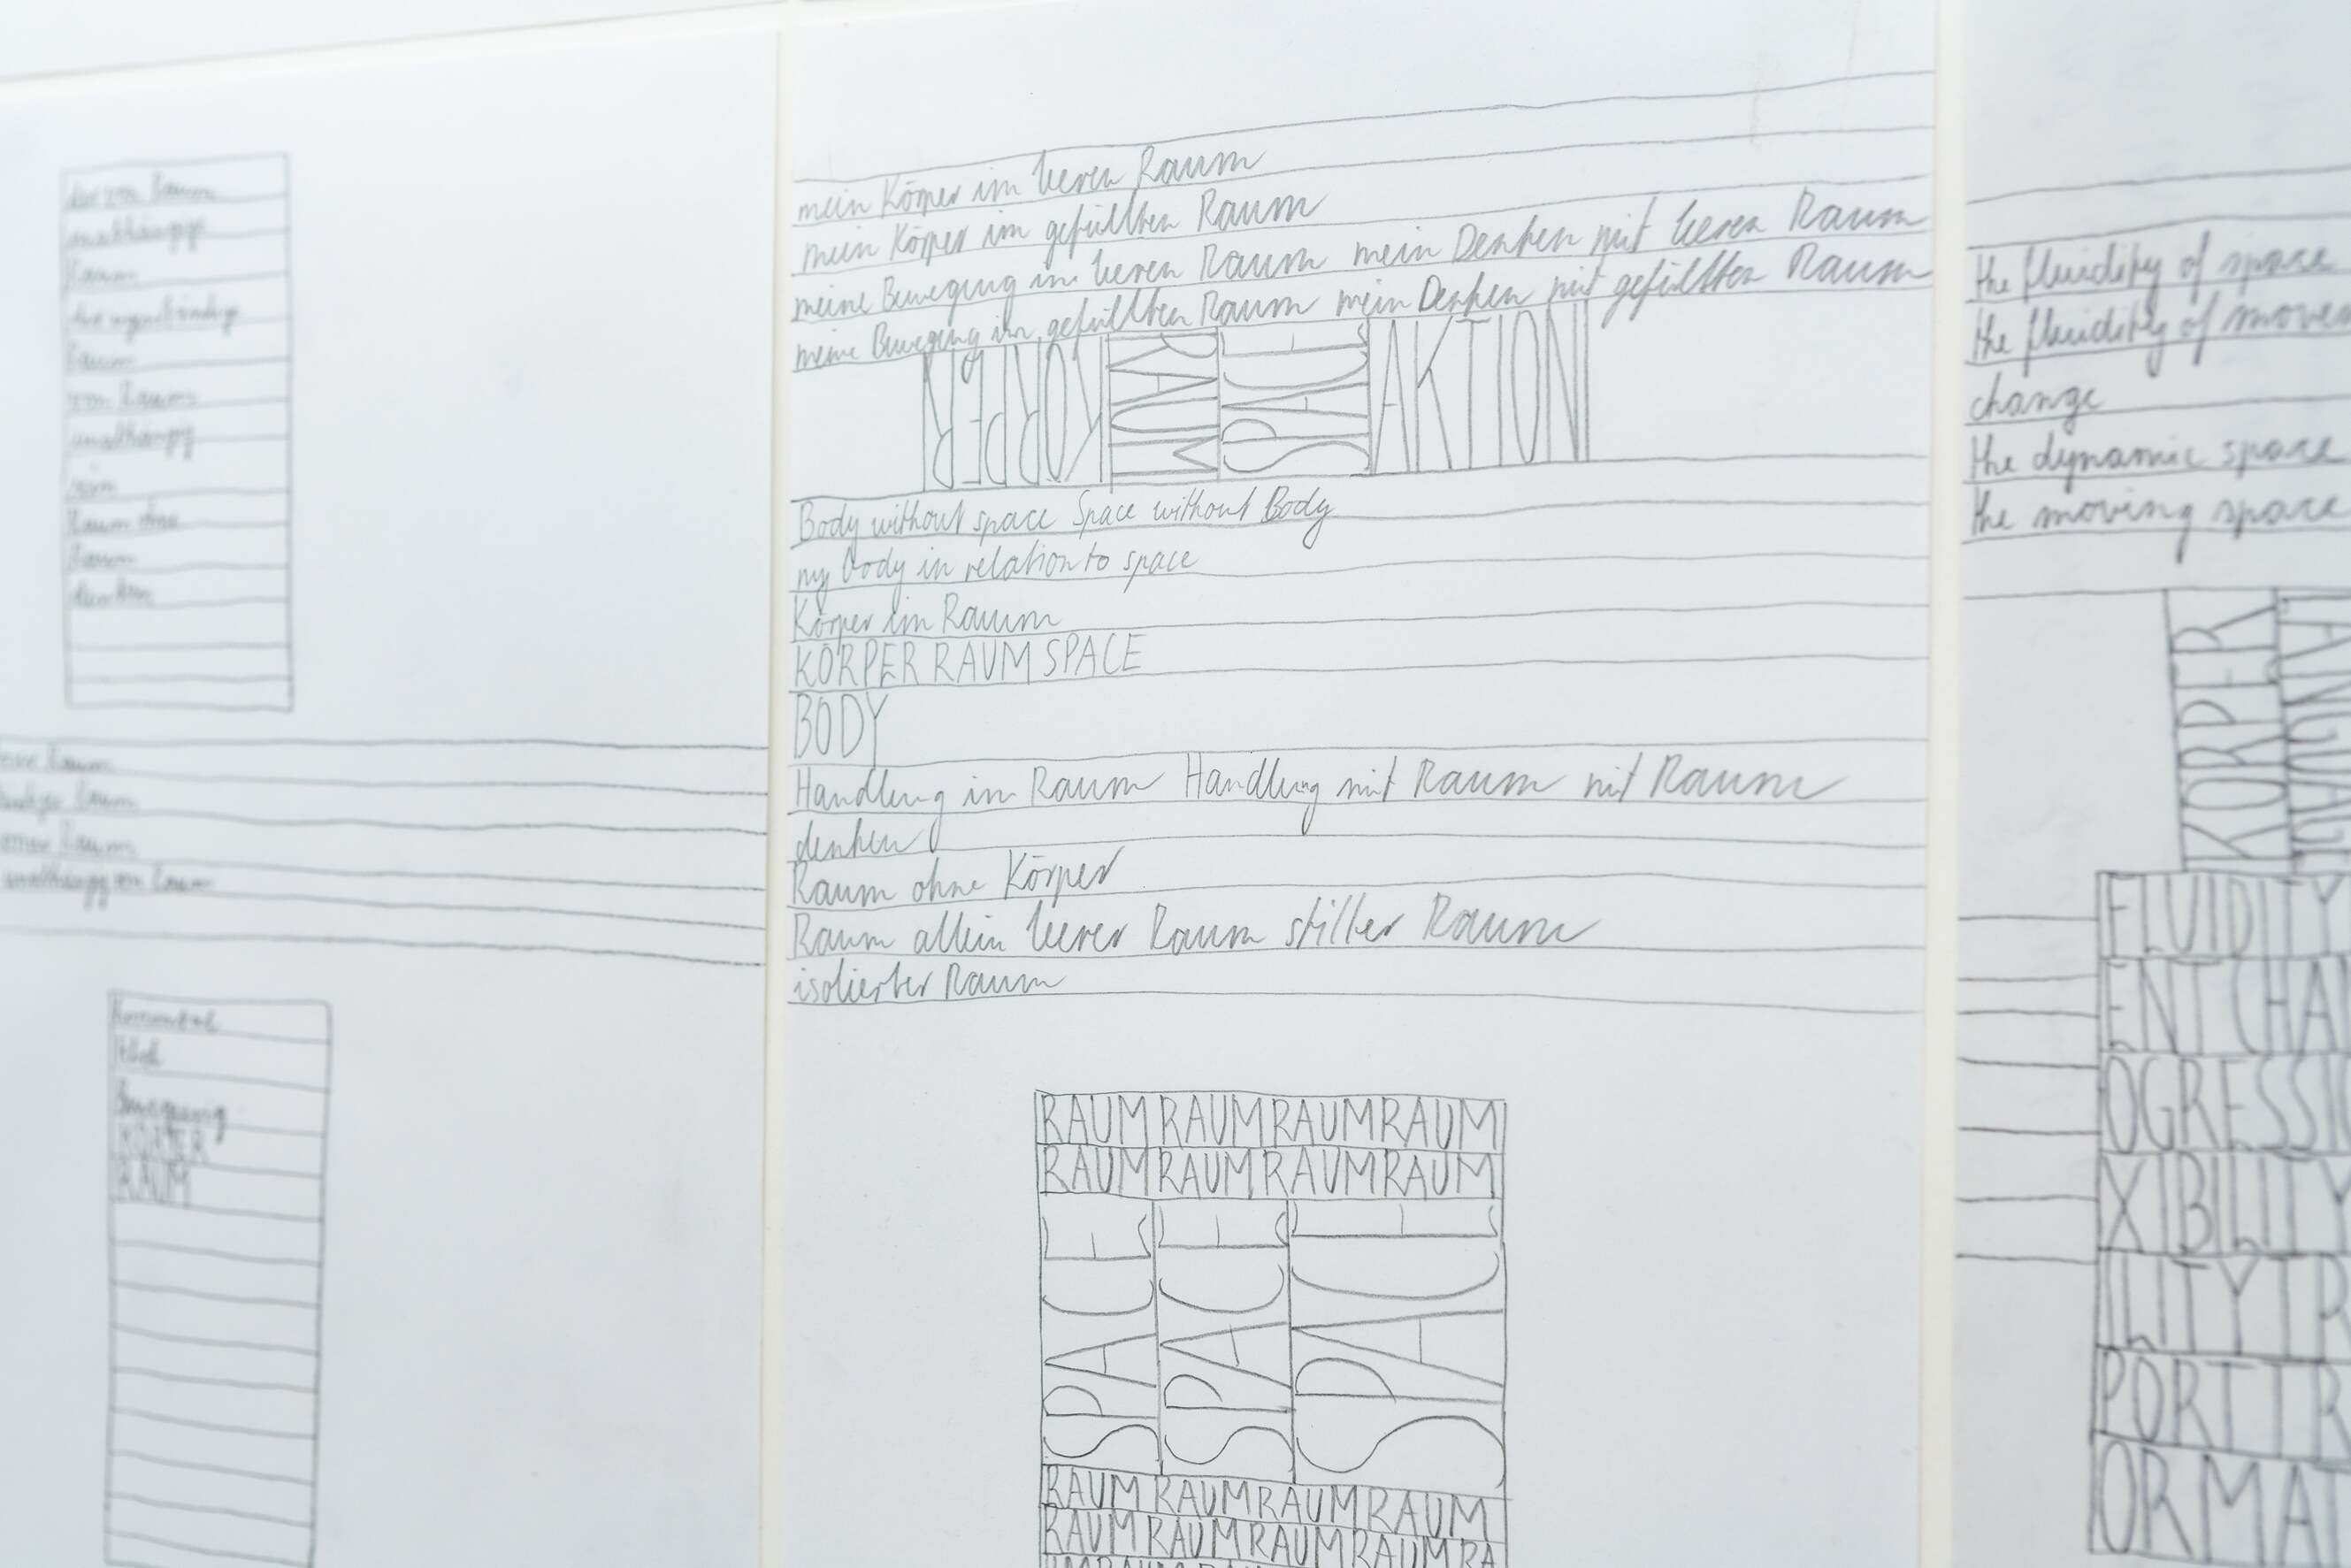 der von Raum
unabhängige
Raum
der eigenständige
Raum
von Raum
unabhängig
sein
Raum ohne
Raum
denken
Raum
Raum
Raum
unabhängig von Raum
Horizontal
Bewegung
KÖRPER
RAUM
mein Körper im leeren Raum
mein Körper im gefüllten Raum
meine Bewegung im leeren Raum mein Denken mit leeren Raum
meine Bewegung im gefüllten Raum mein Denken mit gefüllten Raum
KÖRPER RAUM SPACE AKTION
Body without space Space without Body
my body in relation to space
Körper im Raum
KÖRPER RAUM SPACE
BODY
Handlung im Raum Handlung mit Raum mit Raum
denken
Raum ohne Körper
Raum allein leerer Raum stiller Raum
isolierter Raum
RAUM RAUM RAUM RAUM
RAUM RAUM RAUM RAUM
SPACE SPACE SPACE
RAUM RAUM RAUM RAUM
RAUM RAUM RAUM RAUM RA
the fluidity of space
the fluidity of move
change
the dynamic space
the moving space
KÖRPER
FLUIDITY
ENT CHA
OGRESSI
XIBILITY
ILITY TR
PORT TR
ORMA